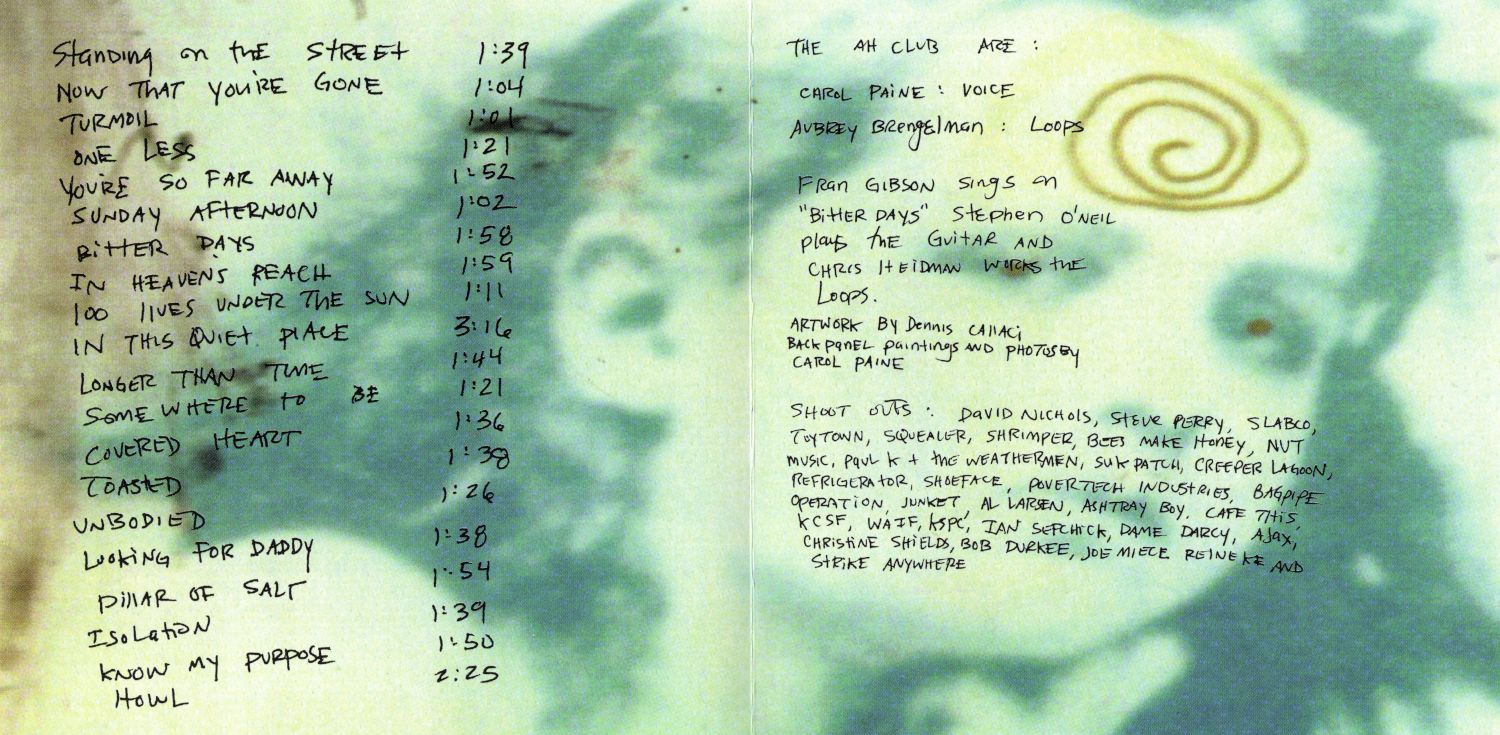 Standing on the STREET 1:39
NOW THAT YOU'RE GONE 1:04
TURMOIL 1:01
ONE LESS 1:21
YOU'RE SO FAR AWAY 1:52
SUNDAY AFTERNOON 1:02
BITTER DAYS 1:58
IN HEAVENS REACH 1:59
100 LIVES UNDER THE SUN 1:11
IN THIS QUIET PLACE 3:16
LONGER THAN TIME 1:44
SOMEWHERE TO BE 1:21
COVERED HEART 1:36
TOASTED 1:38
UNBODIED 1:26
LOOKING FOR DADDY 1:38
PILLAR OF SALT 1:54
ISOLATION 1:39
KNOW MY PURPOSE 1:50
HOWL 2:25
THE AH CLUB ARE :
CAROL PAINE : VOICE
AUBREY BRENGELMAN : LOOPS
FRAN GIBSON SINGS ON
"BITTER DAYS" STEPHEN O'NEIL
plays THE GUITAR AND
CHRIS HEIDMAN WORKS THE
LOOPS.
ARTWORK BY Dennis CALLACI
BACK PANEL paintings AND PHOTOS BY
CAROL PAINE
SHOOT OUTS : DAVID NICHOLS, STEVE PERRY, SLABCO,
TOYTOWN, SQUEALER, SHRIMPER, BEES MAKE HONEY, NUT
MUSIC, PAUL K + THE WEATHERMEN, SUK PATCH, CREEPER LAGOON,
REFRIGERATOR, SHOEFACE, POVERTECH INDUSTRIES, BAGPIPE
OPERATION, JUNKET, AL LARSEN, ASHTRAY BOY, CAFE THIS,
KCSF, WAIF, KSPC, IAN SEFCHICK, DAME DARCY, AJAX,
CHRISTINE SHIELDS, BOB DURKEE, JOE MIECE REINEKE AND
STRIKE ANYWHERE